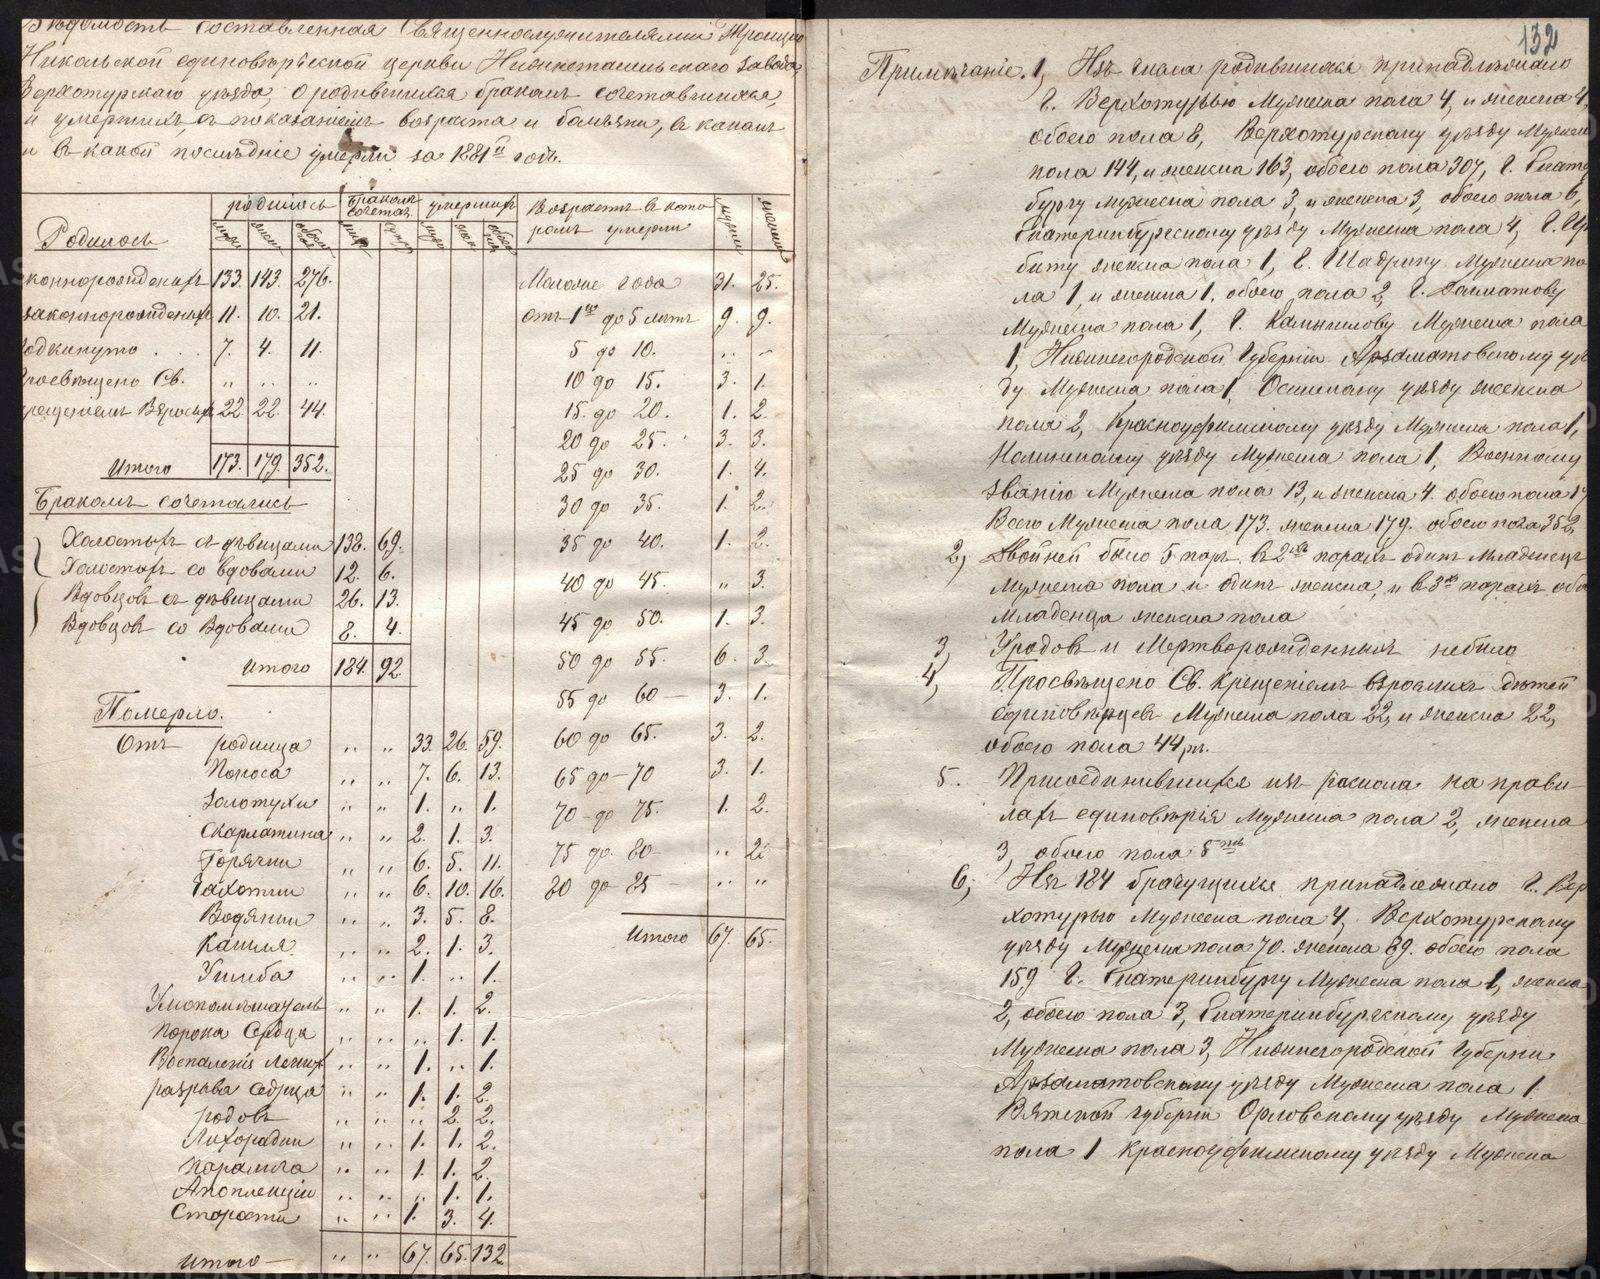 Ведомость составленная Священнослужителями Троицко
Никольской единоверческой церкви Нижнетагильскаго завода
Верхотурскаго уезда, о родившихся браком сочетавшихся,
и умерших, с показанием возраста и болезни, в каких
и в какой последние умерли за 1881й годъ.
родилось Браком сочетал. умерших Возрастъ в кото
ромъ умерли
Родилось
муж. жен. обоего
законнорожденныхъ 133. 143. 276.
незаконнорожденныхъ 11. 10. 21.
Подкинуто . . . 7. 4. 11.
Просвещено Св. „ „ „
крещениемъ Взрослых 22. 22. 44.
Итого 173. 179. 352.
Браком сочетались
Холостыхъ съ девицами 138. 69.
Холостыхъ со вдовами 12. 6.
Вдовцовъ съ девицами 26. 13.
Вдовцовъ со вдовами 8. 4.
Итого 184. 92.
Померло.
Отъ родимца „ „ 33. 26. 59.
Поноса „ „ 7. 6. 13.
Золотухи „ „ 1. „ 1.
Скарлатина „ „ 2. 1. 3.
Горячки „ „ 6. 5. 11.
Чахотки „ „ 6. 10. 16.
Водянки „ „ 3. 5. 8.
Кашля „ „ 2. 1. 3.
Ушиба „ „ 1. „ 1.
Умопомешатель „ „ 1. 1. 2.
Порока Сердца „ „ „ 1. 1.
Воспаления Легких „ „ 1. „ 1.
разрыва Сердца „ „ 1. 1. 2.
родовъ „ „ „ 2. 2.
Лихорадки „ „ 1. 1. 2.
Паралича „ „ 1. 1. 2.
Апоплекции „ „ „ 1. 1.
Старости „ „ 1. 3. 4.
Итого „ „ 67. 65. 132
Моложе года 31. 25.
Отъ 1го до 5 летъ 9. 9.
5 до 10. „ „
10 до 15. 3. 1.
15 до 20. 1. 2.
20 до 25. 3. 3.
25 до 30. 1. 4.
30 до 35. 1. 2.
35 до 40. 1. 2.
40 до 45. „ 3.
45 до 50. 1. 3.
50 до 55. 6. 3.
55 до 60 3. 1.
60 до 65. 3. 2.
65 до 70 3. 1.
70 до 75. 1. 2.
75 до 80 „ 2.
80 до 85 „ „
Итого 67. 65.
132
Примечание. 1, Изъ числа родившихся принадлежало
г. Верхотурью Мужеска пола 4, и женска 4,
обоего пола 8, Верхотурскому уезду Мужеск
пола 144, и женска 163, обоего пола 307, г. Екатер
бургу мужеска пола 3, и женска 3, обоего пола 6,
Екатеринбургскому уезду Мужеска пола 4, г. Ир
биту женска пола 1, г. Шадрину Мужеска по
ла 1, и женска 1, обоего пола 2, г. Далматову
Мужеска пола 1, г. Камышлову Мужеска пола
1, Нижегородской Губернии Арзаматовскому уез
ду Мужеска пола 1, Осинскому уезду женска
пола 2, Красноуфимскому уезду Мужеска пола 1,
Нолинскому уезду Мужеска пола 1, Военному
званию Мужеска пола 13, и женска 4. обоего пола 17
Всего Мужеска пола 173. женска 179. обоего пола 352,
2, Двойней было 5 паръ, в 2хъ парахъ один младенецъ
Мужеска пола и один женска, и в 3хъ парахъ оба
младенца женска пола
3, Уродовъ и Мертворожденныхъ небыло
4, Просвещено Св. крещениемъ взрослыхъ детей
единоверцевъ Мужеска пола 22, и женска 22,
обоего пола 44,
5. Присоединившихся изъ раскола на прави
лахъ единоверия Мужеска пола 2, женска
3, обоего пола 5ть
6, Изъ 184 брачущихся принадлежало г. Вер
хотурью Мужеска пола 4, Верхотурскому
уезду Мужеска пола 70. женска 89. обоего пола
159, г. Екатеринбургу Мужеска пола 1, женска
2, обоего пола 3, Екатеринбургскому уезду
Мужеска пола 3, Нижегородской Губернии
Арзаматовскому уезду Мужеска пола 1
Вятской губернии Орловскому уезду Мужеска
пола 1 Красноуфимскому уезду Мужеска